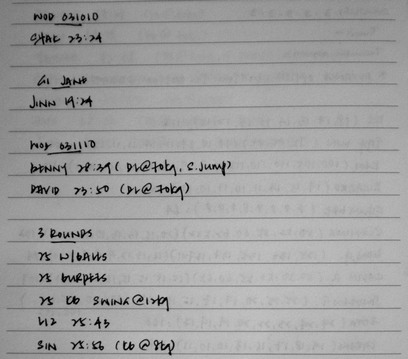 WOD 031010
SHAL 23:24
GI JANE
JINN 19:24
WOD 031110
BENNY 28:39 (DL@70kg, S.Jump)
DAVID 23:50 (DL@70kg)
3 ROUNDS
25 W/BALLS
25 BURPEES
25 KB SWING@12kg
LIZ 25:43
SIN 25:56 (KB@8kg)